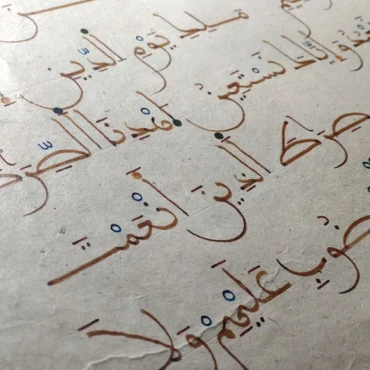 ملك يوم الدين
نعبد وإياك نستعين اهدنا الصر
صرط الذين أنعمت
ضوب عليهم ولا